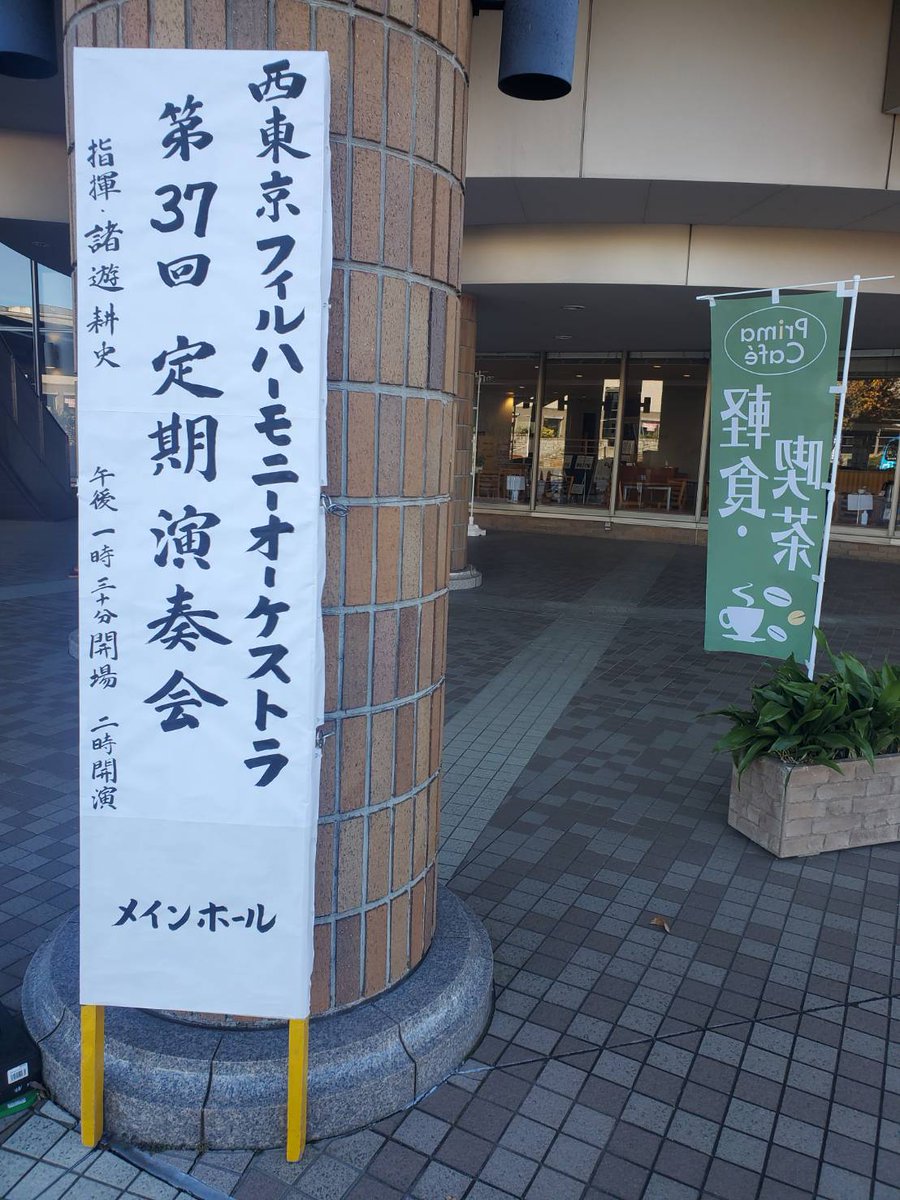 西東京フィルハーモニーオーケストラ
第37回 定期演奏会
指揮・諸遊耕史 午後一時三十分開場 二時開演
メインホール
Prima
Café
喫茶
軽食・